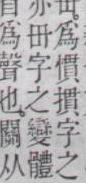 爲慣、摜字之
亦毌字之變體
爲聲也。關从